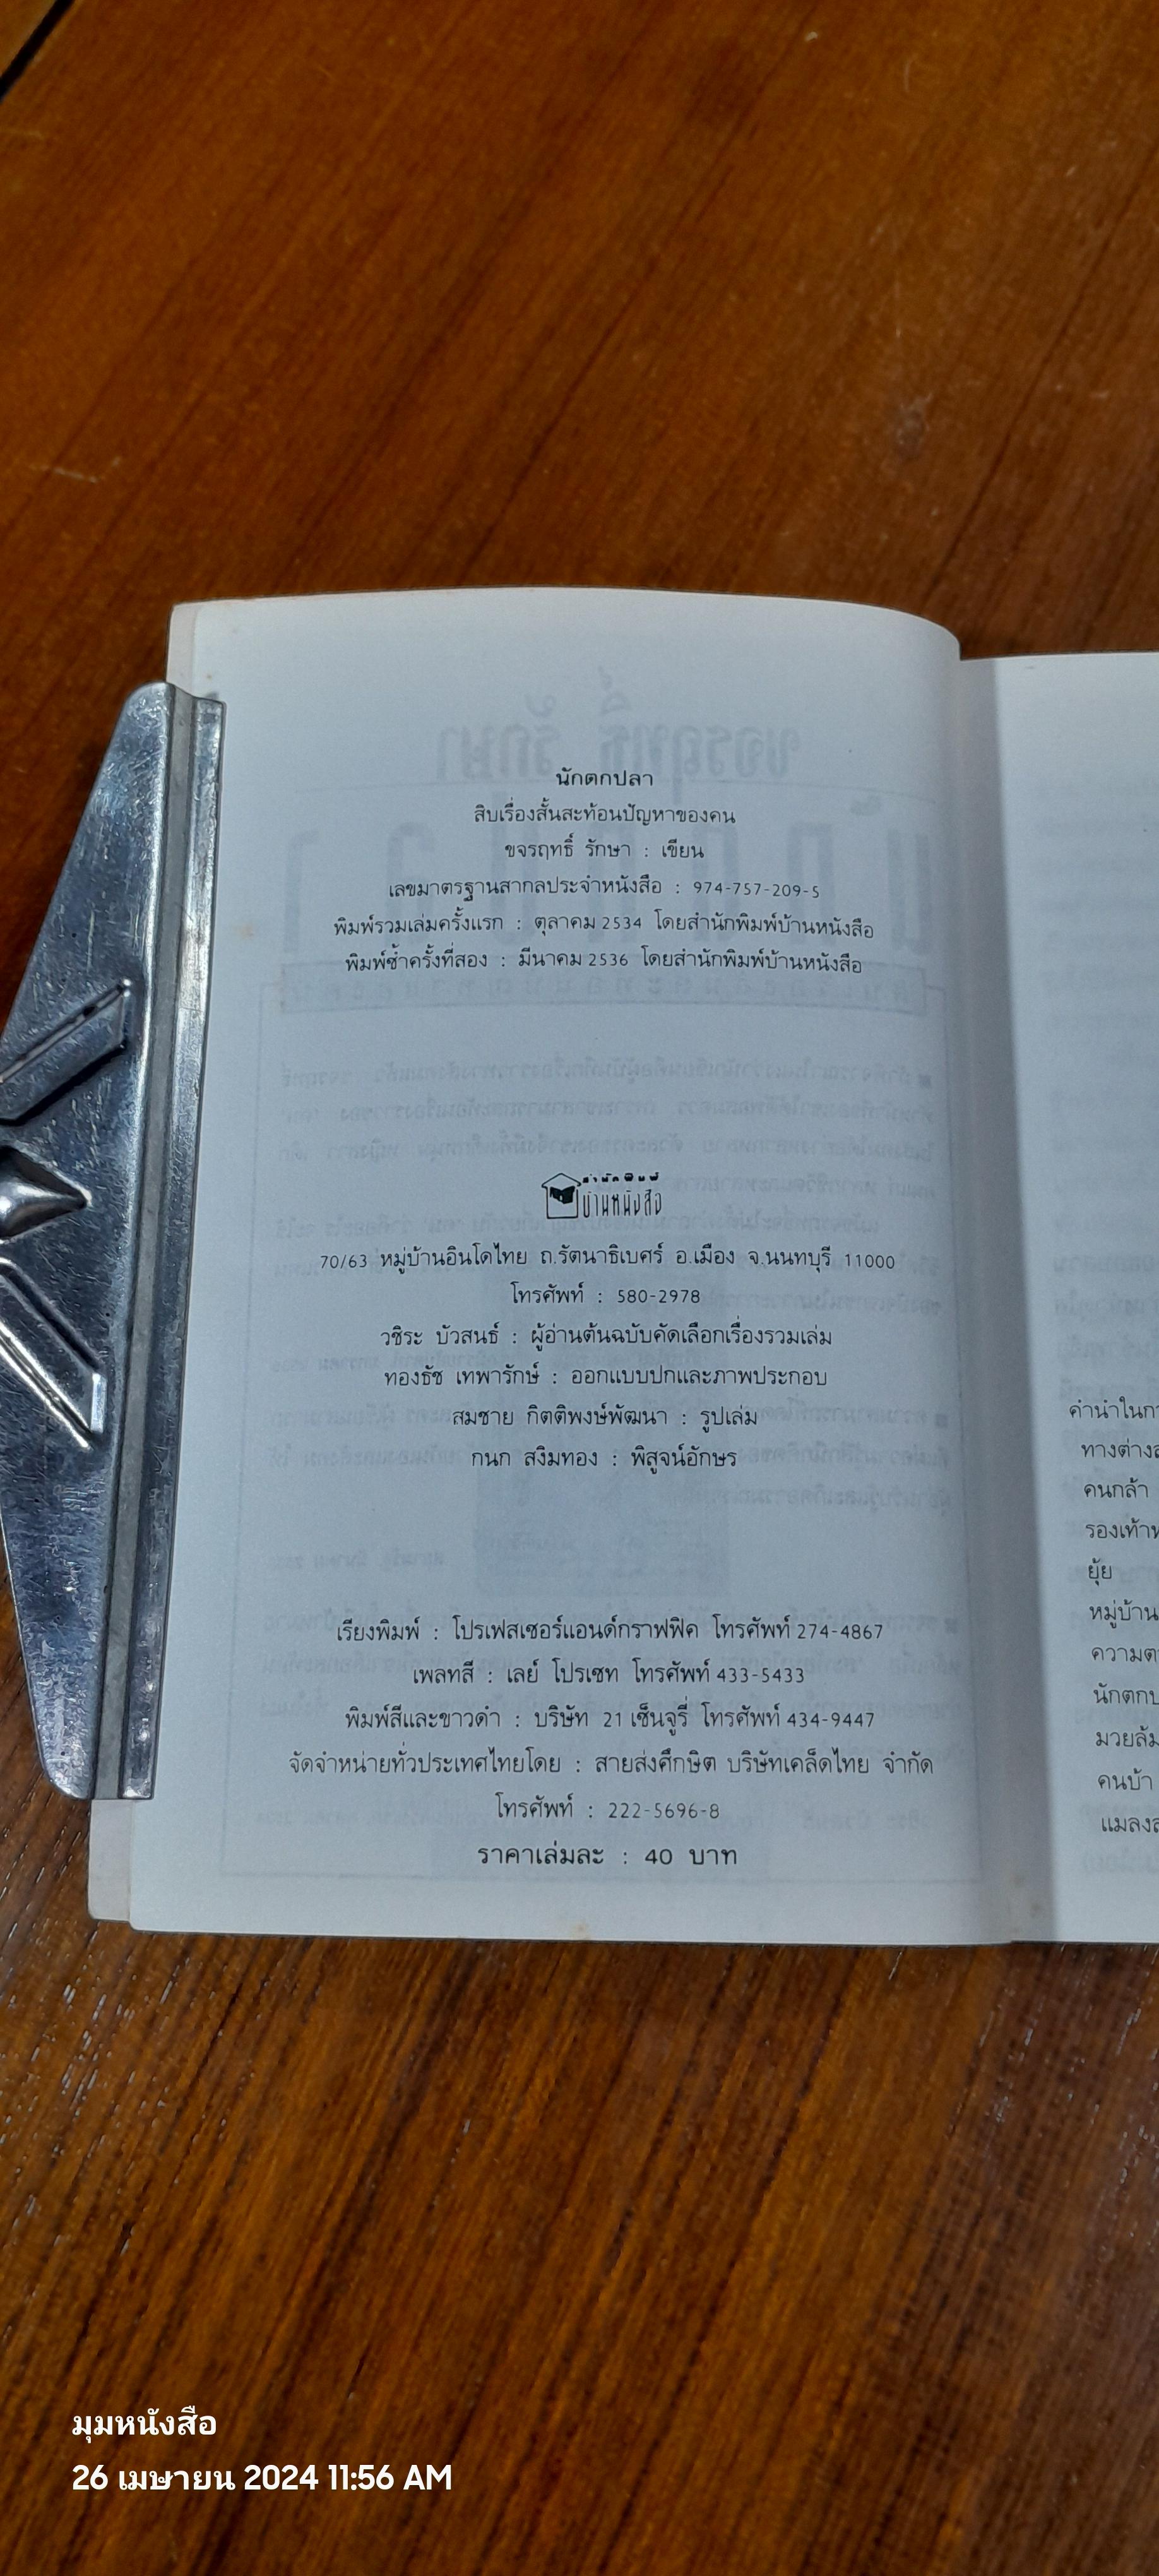 นักตกปลา
สิบเรื่องสั้นสะท้อนปัญหาของคน
ขจรฤทธิ์ รักษา : เขียน
เลขมาตรฐานสากลประจำหนังสือ : 974-757-209-5
พิมพ์รวมเล่มครั้งแรก : ตุลาคม 2534 โดยสำนักพิมพ์บ้านหนังสือ
พิมพ์ซ้ำครั้งที่สอง : มีนาคม 2536 โดยสำนักพิมพ์บ้านหนังสือ
สำนักพิมพ์
บ้านหนังสือ
70/63 หมู่บ้านอินโดไทย ถ.รัตนาธิเบศร์ อ.เมือง จ.นนทบุรี 11000
โทรศัพท์ : 580-2978
วชิระ บัวสนธ์ : ผู้อ่านต้นฉบับคัดเลือกเรื่องรวมเล่ม
ทองธัช เทพารักษ์ : ออกแบบปกและภาพประกอบ
สมชาย กิตติพงษ์พัฒนา : รูปเล่ม
กนก สงิมทอง : พิสูจน์อักษร
เรียงพิมพ์ : โปรเฟสเซอร์แอนด์กราฟฟิค โทรศัพท์ 274-4867
เพลทสี : เลย์ โปรเซท โทรศัพท์ 433-5433
พิมพ์สีและขาวดำ : บริษัท 21 เซ็นจูรี่ โทรศัพท์ 434-9447
จัดจำหน่ายทั่วประเทศไทยโดย : สายส่งศึกษิต บริษัทเคล็ดไทย จำกัด
โทรศัพท์ : 222-5696-8
ราคาเล่มละ : 40 บาท
คำนำในกา
ทางต่างส
คนกล้า
รองเท้าห
ยุ้ย
หมู่บ้าน
ความต
นักตกป
มวยล้ม
คนบ้า
แมลงส
มุมหนังสือ
26 เมษายน 2024 11:56 AM